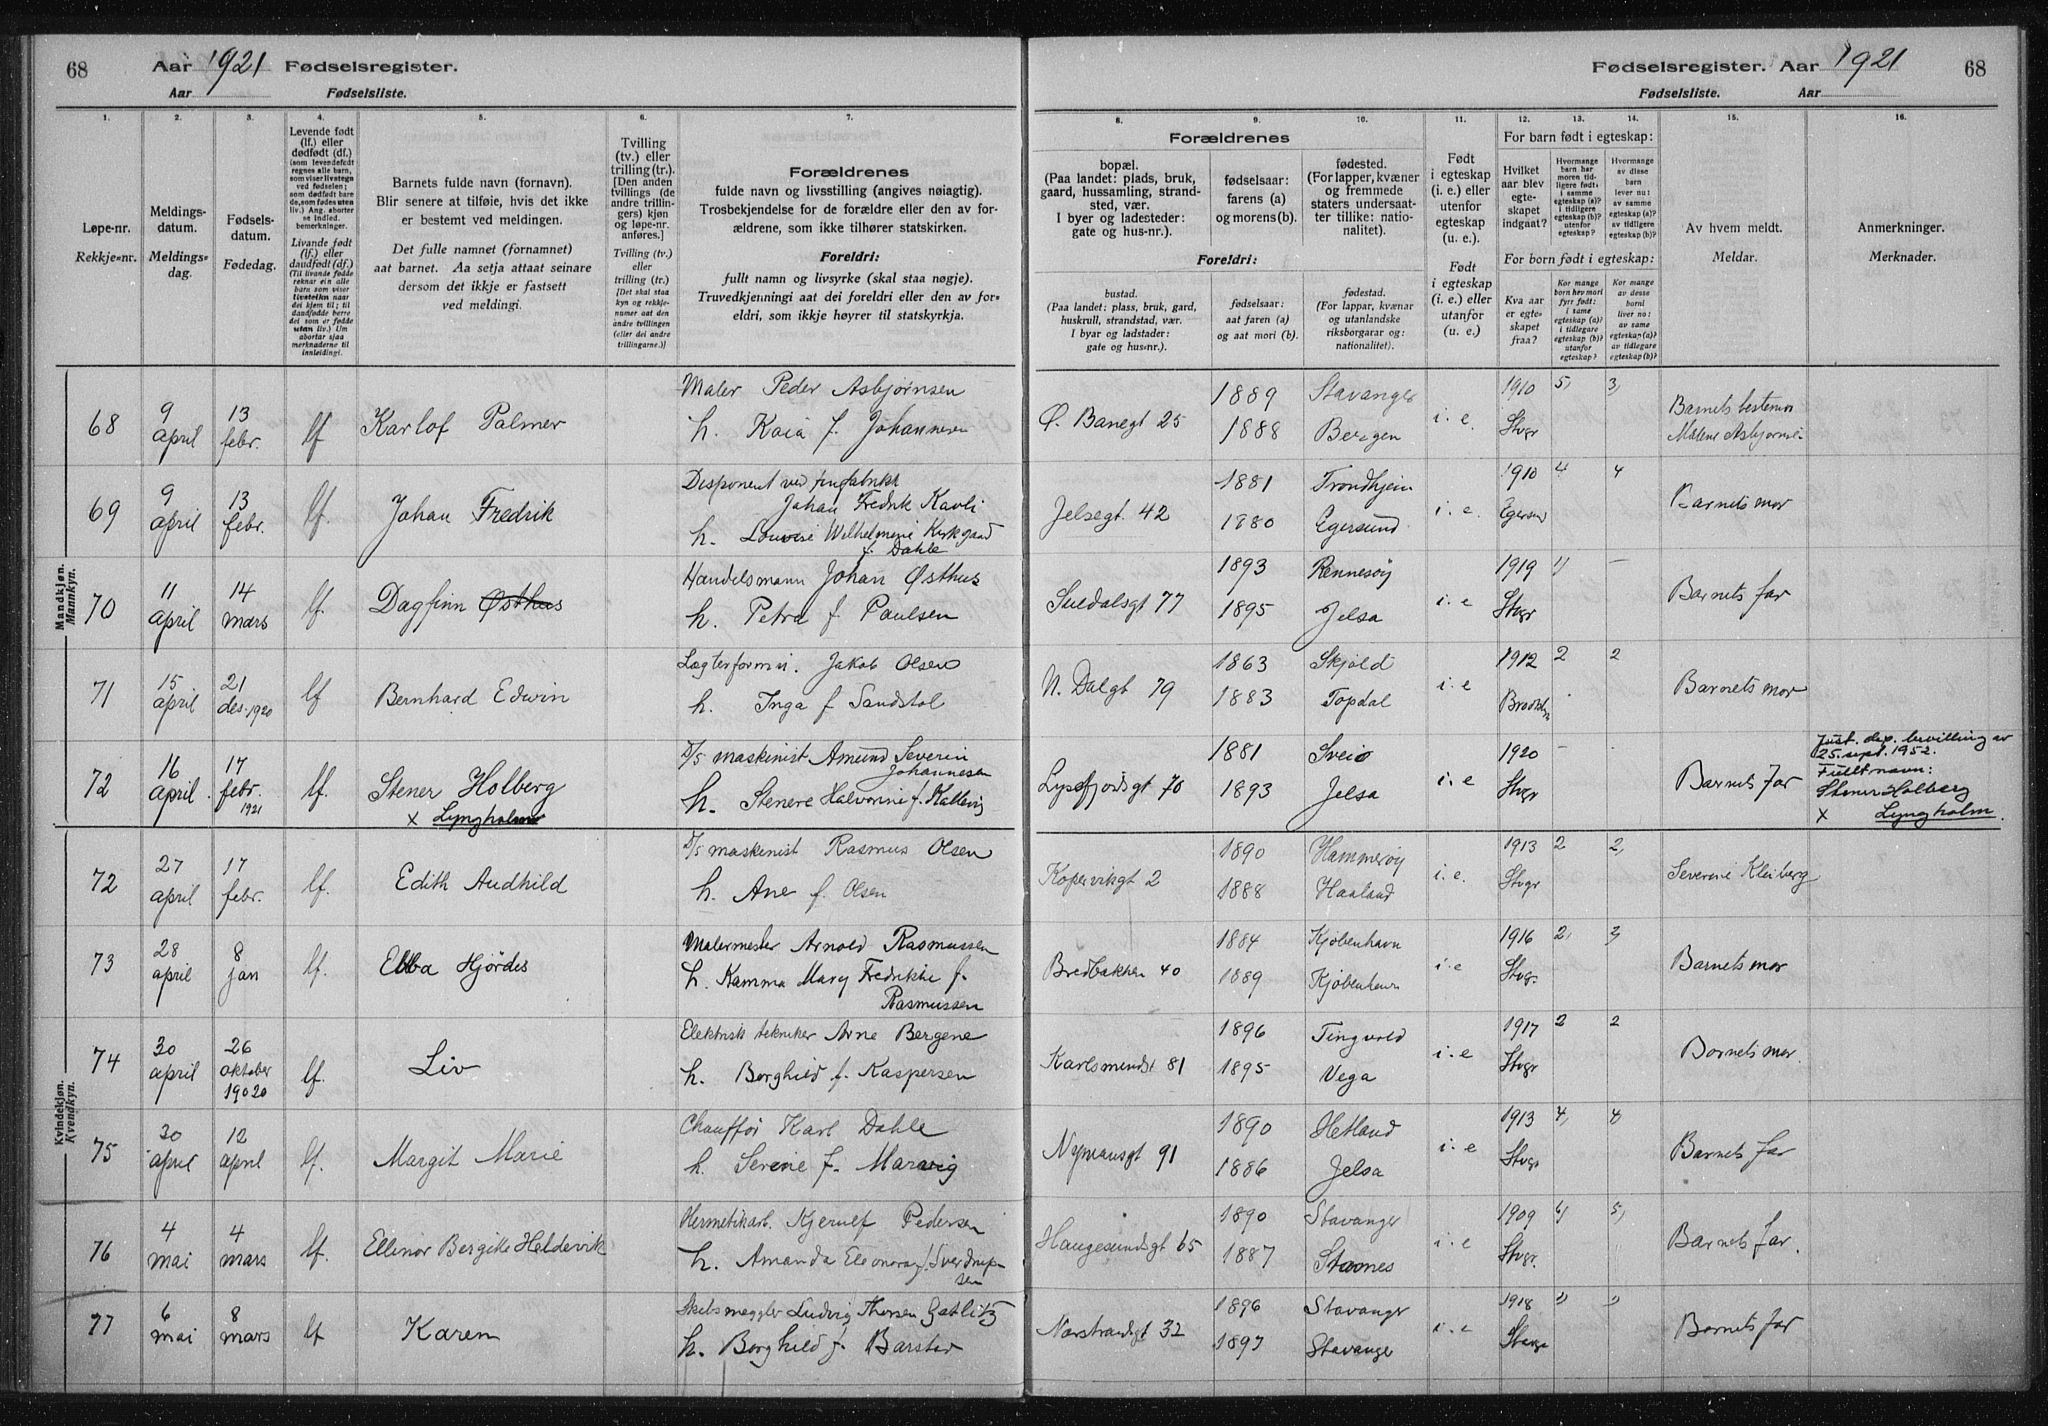 68 Aar 1921 Fødselsregister.
Aar Fødselsliste.
Fødselsregister. Aar 1921 68
Fødselsliste. Aar
1. 2. 3. 4. 5. 6. 7.
Løpe-nr.
Rekkje-nr.
Meldings-
datum.
Meldings-
dag.
Fødsels-
datum.
Fødedag.
Levende født
(lf.) eller
dødfødt (df.)
Livande født
(lf.) eller
daudfødt (df.)
Barnets fulde navn (fornavn).
Blir senere at tilføie, hvis det ikke
er bestemt ved meldingen.
Det fulle namnet (fornamnet)
aat barnet. Aa setja attaat seinare
dersom det ikkje er fastsett
ved meldingi.
Tvilling
(tv.) eller
trilling (tr.).
[Den anden
tvillings (de
andre trillin-
gers) kjøn
og løpe-nr.
anføres.]
Tvilling (tv.)
eller
trilling (tr.)
[Det skal staa
kyn og rekkje-
numer aat den
andre tvillingen
(eller dei andre
trillingarne.)]
Forældrenes
fulde navn og livsstilling (angives nøiagtig).
Trosbekjendelse for de forældre eller den av for-
ældrene, som ikke tilhører statskirken.
Foreldri:
fullt namn og livsyrke (skal staa nøgje).
Truvedkjenningi aat dei foreldri eller den av for-
eldri, som ikkje høyrer til statskyrkja.
8. 9. 10. 11. 12. 13. 14. 15. 16.
Forældrenes
bopæl.
(Paa landet: plads, bruk,
gaard, hussamling, strand-
sted, vær.
I byer og ladesteder:
gate og hus-nr.).
fødselsaar:
farens (a)
og morens (b).
fødested.
(For lapper, kvæner
og fremmede
staters undersaat-
ter tillike: natio-
nalitet).
Foreldri:
bustad.
(Paa landet: plass, bruk, gard,
huskrull, strandstad, vær.
I byar og ladstader:
gate og hus-nr.).
fødselsaar:
aat faren (a)
og aat mori (b).
fødestad.
(For lappar, kvænar
og utanlandske
riksborgarar og:
nationalitet).
Født
i egteskap
(i. e.) eller
utenfor
egteskap
(u. e.).
Født
i egteskap
(i. e.) eller
utanfor
(u. e.).
For barn født i egteskap:
Hvilket
aar blev
egte-
skapet
indgaat?
For born født i egteskap:
Kva aar
er egte-
skapet
fraa?
Av hvem meldt.
Meldar.
Anmerkninger.
Merknader.
Mandkjøn.
Mannkyn.
68 9 april 13 febr. lf Karlof Palmer
Maler Peder Asbjørnsen
h. Kaia f. Johannesen
Ø. Banegt 25 1889 Stavanger i. e. 1910 5, 3,
1888 Bergen Stvgr
Barnets bestemor
Malene Asbjørnse-
69 9 april 13 febr. lf. Johan Fredrik
Disponent ved
Johan Fredrik Kavli
h. Lovise Wilhelmine Kirkgaard
f. Dahle
Jelsegt. 42 1881 Trondhjem i. e. 1910 4 4
1880 Egersund Egersund
Barnets mor
70 11 april 14 mars lf. Dagfinn Østhus
Handelsmann Johan Østhus
h. Petra f. Paulsen
Suldalsgt 77 1893 Rennesøy i. e 1919 1) –
1895 Jelsa Stvgr
Barnets far
71 15 april 21 des. 1920 lf Bernhard Edwin
Jakob Olsen
h. Inga f Sandstøl
N. Dalgt 79 1863 Skjold i. e 1912 2 2
1883 Topdal
Barnets mor
72 16 april. 17 febr. 1921 lf. Stener Holberg
x Lyngholm
D/S maskinist Amund Severin
Johannesen
h. Stenere Halvorine f. Kallevig
Lysefjordsgt 70 1881 Sveio i. e 1920 –
1893 Jelsa Stvgr
Barnets far
Just. dep. bevilling av
25. sept. 1952.
Fullt navn:
Stener Holberg
x Lyngholm.
Kvindekjøn.
Kvendkyn.
72 27 april 17 febr. lf. Edith Audhild
D/S maskinist Rasmus Olsen
h. Ane f. Olsen
Kopervikgt 2 1890 Hammerøy i. e. 1913 2 2,
1888 Haaland Stvgr
Severine Kleiberg
73 28 april 8 jan lf. Ebba Hjørdes
Malermester Arnold Rasmussen
h. Kamma Mary Fredrikke f.
Rasmussen
Bredbakken 40 1884 Kjøbenhavn i. e 1916 2,
1889 Kjøbenhavn Stvgr.
Barnets mor
74 30 april 26 oktober 19020 lf. Liv
Elektrisk tekniker Arne Bergene
h. Borghild f. Kaspersen
Karlsmindst 81 1896 Tingvold i. e 1917 2 2
1895 Vega Stvgr
Barnets mor.
75 30 april 12 april lf. Margit Marie
Chauffør Karl Dahle
h. Serine f. Marvig
Nymansgt 91 1890 Hetland i. e 1913 4, 4
1886 Jelsa Stvgr
Barnets far
76 4 mai 4 mars lf. Ellinor Bergitte Heldevik
Hermetikarb. Kjerulf Pedersen
h. Amanda Eleonora f. Sverdrup-
sen
Haugesundsgt 65 1890 Stavanger i. e 1909 5,
1887 Stvgr.
Barnets far.
77 6 mai 8 mars lf Karen
Skibsmegler Ludvig Thorsen Gatlitz
h. Borghild f. Barstad
Norstrandsgt 32 1896 Stavanger i. e 1918 1) 1)
1897 Stavanger
Barnets far